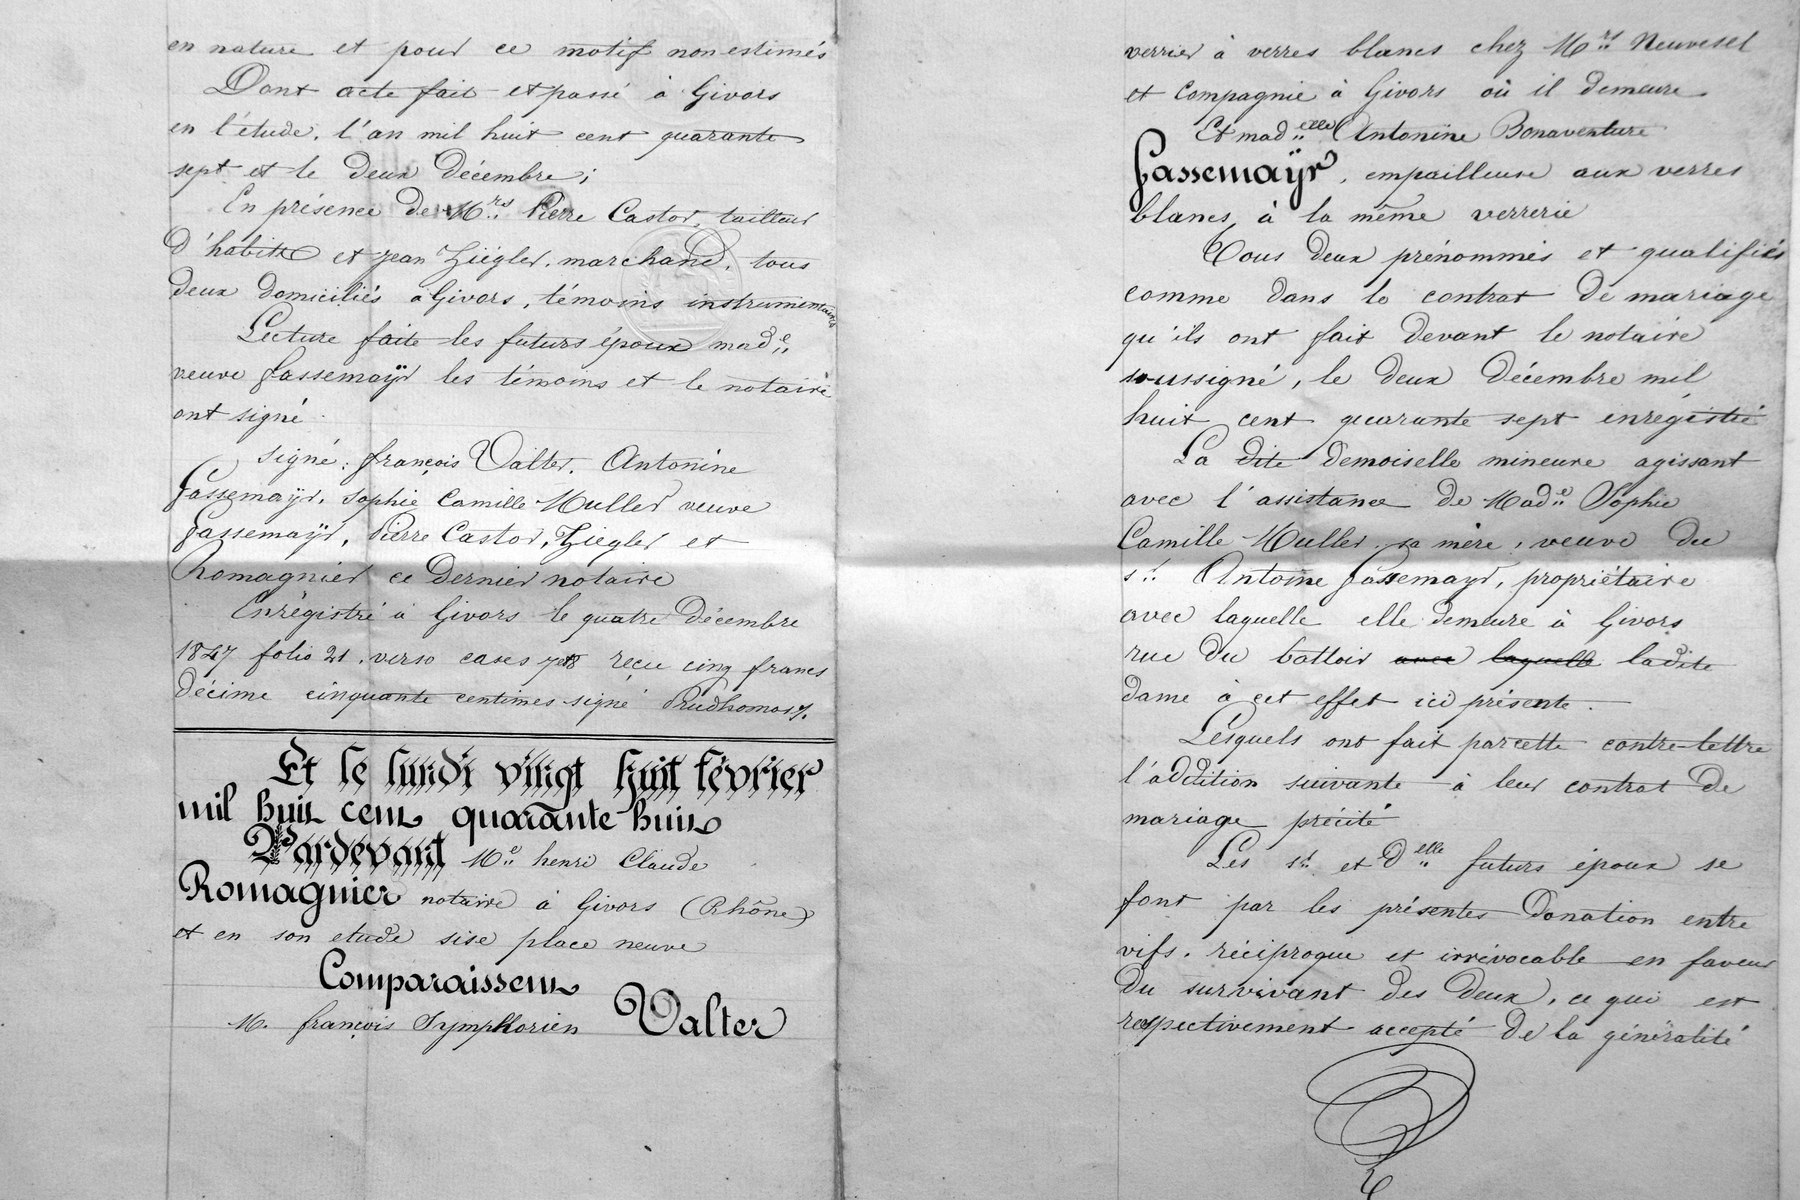 en nature et pour ce motif non estimés
Dont acte fait et passé à Givors
en l'étude, l'an mil huit cent quarante
sept et le deux décembre ;
En présence de M.rs Pierre Castor, tailleur
d'habits et jean Ziégler, marchand, tous
deux domiciliés à Givors, témoins instrumentaires
Lecture faite les futurs époux mad.e
veuve Gassemaÿr les témoins et le notaire
ont signé
signé : françois Valter, Antonine
Gassemaÿr, Sophie Camille Muller veuve
Gassemaÿr, Pierre Castor, Ziegler et
Romagnier ce dernier notaire
Enrégistré à Givors le quatre décembre
1847 folio 21, verso cases 7 et 8 reçu cinq francs
décime cinquante centimes signé Prudhomas.
Et le lundi vingt huit février
mil huit cent quarante huit
Pardevant M.e henri Claude
Romagnier notaire à Givors (Rhône)
et en son etude sise place neuve
Comparaissent
M. françois Symphorien Valter
verrier à verres blancs chez M.rs Neuvesel
et Compagnie à Givors où il demeure
Et mad.elle Antonine Bonaventure
Gassemaÿr, empailleuse aux verres
blancs à la même verrerie
Tous deux prénommés et qualifiés
comme dans le contrat de mariage
qu'ils ont fait devant le notaire
soussigné, le deux Décembre mil
huit cent quarante sept enrégistré
La dite demoiselle mineure agissant
avec l'assistance de Mad.e Sophie
Camille Muller sa mère, veuve du
s.r Antoine Gassemayr, propriétaire
avec laquelle elle demeure à Givors
rue du battoir avec laquelle ladite
dame à cet effet ici présente.
Lesquels ont fait par cette contre-lettre
l'addition suivante à leur contrat de
mariage précité
Les s.r et d.elle futurs époux se
font par les présentes donation entre
vifs, réciproque et irrévocable en faveur
du survivant des deux, ce qui est
respectivement accepté de la généralité